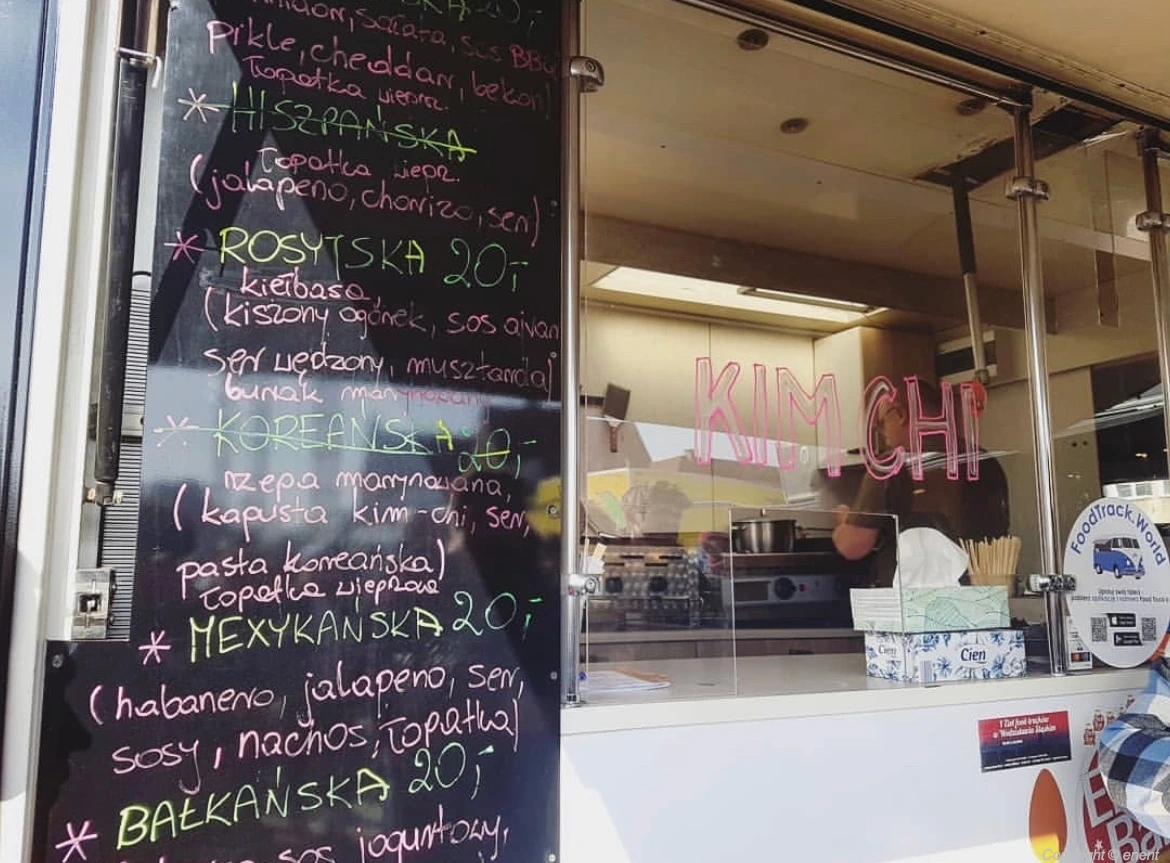 SKA 20,-
sałata, sos BBQ
Pikle, cheddar, bekon)
Łopatka wieprz.
* HISZPAŃSKA
Łopatka wiepz.
(jalapeno, chorizo, ser)
* ROSYJSKA 20,-
kiełbasa,
(kiszony ogórek, sos ajvar
ser wędzony, musztarda)
burak marynowany
* KOREAŃSKA 20,-
rzepa marynowana,
(kapusta kim-chi, ser,
pasta koreańska)
Łopatka wieprzowa
* MEXYKAŃSKA 20,-
(habanero, jalapeno, ser,
sosy, nachos, Łopatka)
* BAŁKAŃSKA 20,-
sos jogurtowy,
KIM CHI
FoodTrack.World
Cien
Cien
V Zlot food trucków
w Wodzisławiu Śląskim
Copyright © enent